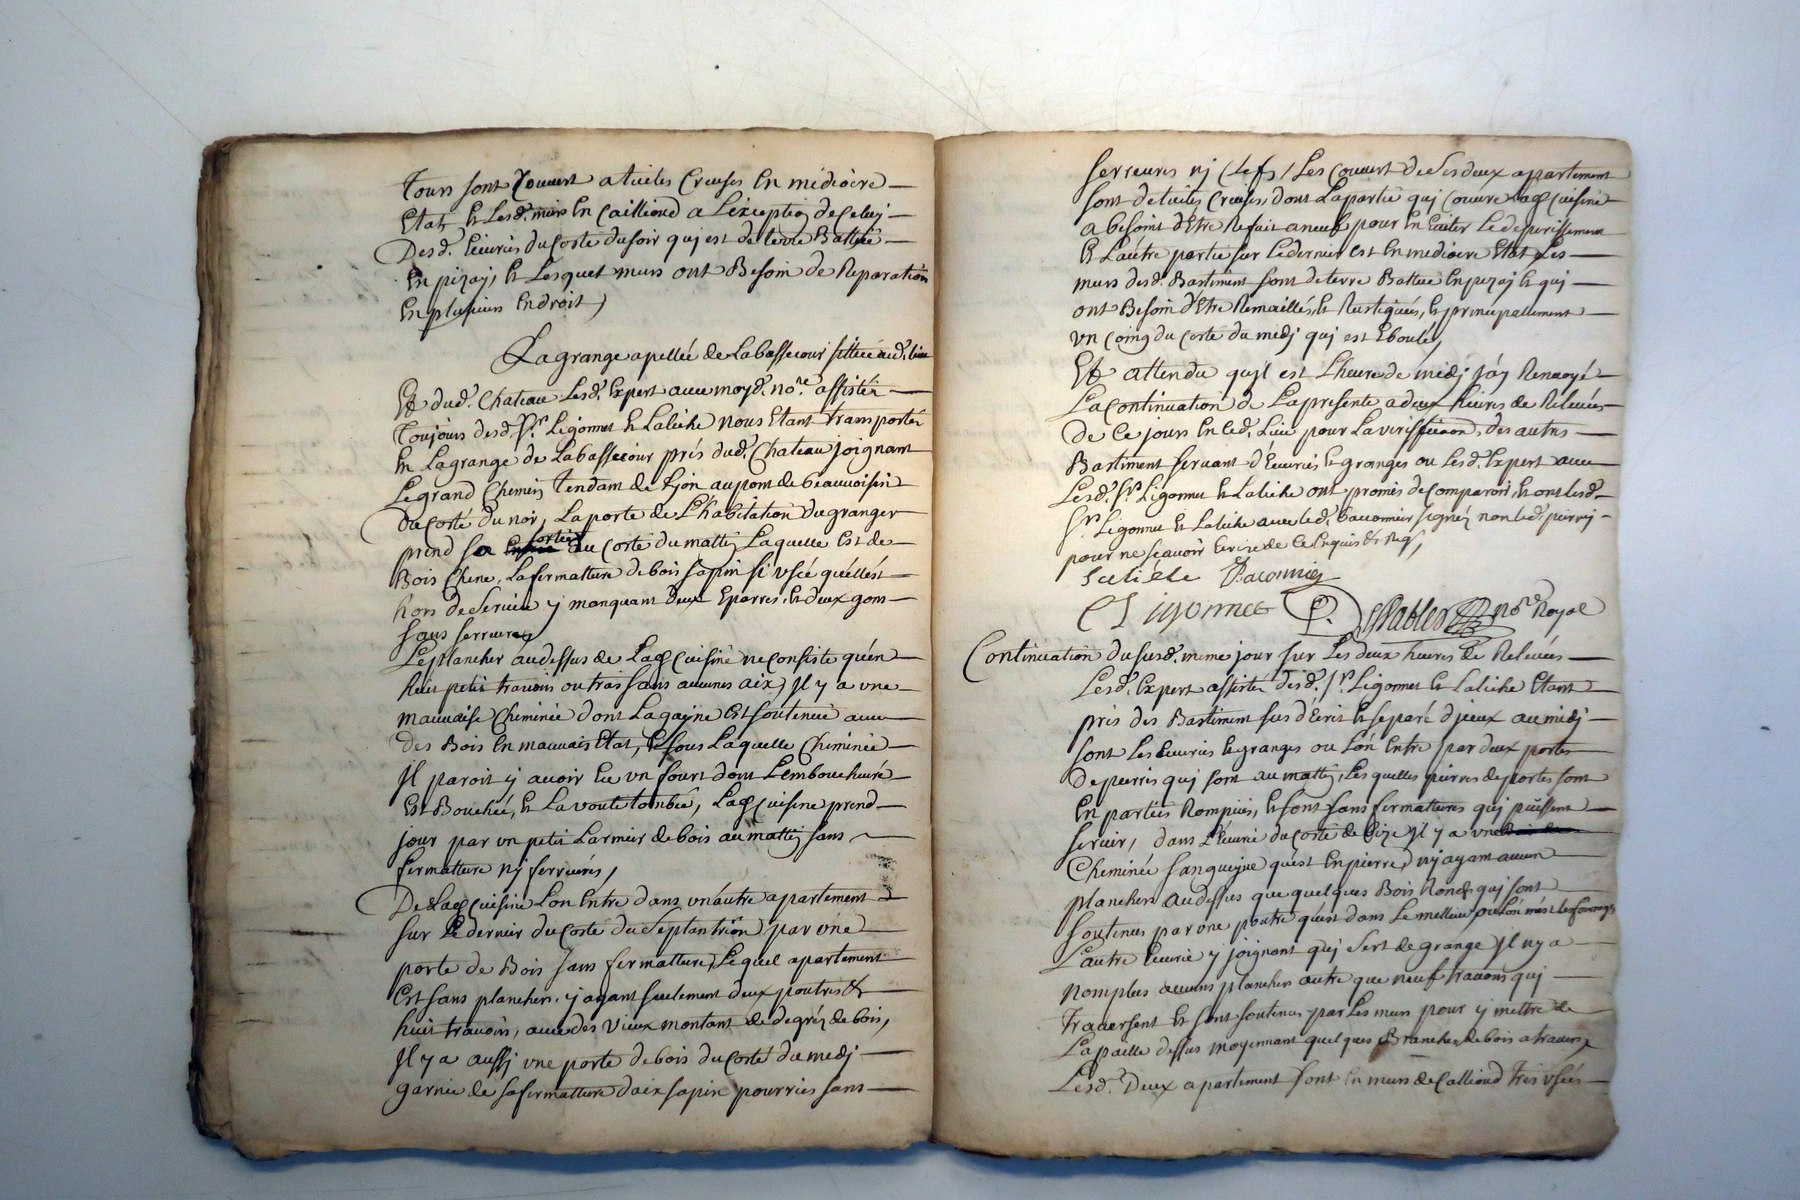 Tous sont Couvert a tuiles Creuses En mediocre
Etat, Et Lesd. murs En Caillioud a L'exception de Celuy
Desd. Ecuries du Costé du soir qui est de terre Battue
En pizay, Et Lesquel murs ont Besoin de Reparation
En plusieurs Endroit,
La grange apellée de La bassecour sittuée aud. lieu
Et dud. Chateau Lesd. Expert avec moyd. no.re assistés
Toujours desd. Srs Ligonnet Et Laliche nous Etant transportés
En La grange de La bassecour prés dud. Chateau joignant
Le grand Chemin Tendam de Lion au pont de beauvoisin
Du Costé du noir, La porte de L'habitation du grangier
prend sa sortie du Costé du mattin Laquelle est de
Bois Chene, La fermatture de bois sapin si usée qu'elle est
hors de Service y manquant deux Eparres, Et deux gons
sans serrures
Le plancher au dessus de Lad. Cuisine ne Consiste qu'en
huit petis travons ou tras sans aucunes aix, Il y a une
mauvaise Cheminée dont La gayne Est soutenue avec
des Bois En mauvais Etat, Et sous Laquelle Cheminée
Il paroit y avoir Eu un fourt dont L'embouchure
Est Bouchée, Et La voute tombée, Lad. Cuisine prend
jour par un petit Larmier de bois au mattin sans
fermatture ny ferrures,
De Lad. Cuisine L'on Entre dans un autre apartement
sur Le dernier du Costé du Septantrion par une
porte de Bois sans fermatture, Lequel apartement
Est sans plancher, y ayant seulement deux poutres Et
huit travons, avec des vieux montant de degrés de bois,
Il y a aussy une porte de bois du Costé du medy
garnie de sa fermatture d'aix sapin pourries sans
serrures ny Clefs, Les Couvert de Ses deux apartement
sont de tuiles Creuses, dont La partie qui Couvre Lad. Cuisine
a besoint d'Etre Refait a neuf pour En Eviter Le deperissement
Et L'autre partie sur Le dernier est En mediocre Etat Les
murs desd. Bastiment sont de terre Battue En pizay Et qui
ont Besoin d'Etre Remaillés, Et Rustiqués, Et principallement
un Coing du Costé du midy qui est Eboulé,
Et attendu qu'il est L'heure de midy j'ay Renvoyé
La Continuation de La presente a deux heures de Relevées
de Ce jours En Led. Lieu pour La veriffication des autres
Bastiment servant d'Ecuries Et granges ou Lesd. Expert avec
Lesd. Srs Ligonnet Et Laliche ont promis de Comparoir, Et ont Lesd.
Srs Ligonnet Et Laliche avec Led. Baconnier signés non Led. perrin
pour ne sçavoir Ecrire de Ce Enquis Et Req.
Laliche Baconnier
Ligonnet P. Stabler no.re Royal
Continuation dusd. meme jour sur Les deux heures de Relevées
Lesd. Expert assistés desd. Srs Ligonnet Et Laliche Etant
prés des Bastiment sus d'Ecris Et separé d'jceux au midy
sont Les Ecuries Et granges ou L'on Entre par deux portes
De pierres qui sont au mattin, Lesquelles pierres de portes sont
En parties Rompües, Et sont sans fermattures qui puissent
servir, dans L'Ecurie du Costé de bize Il y a une
Cheminée sans gueyne qu'est En pierre, n'y ayant aucun
plancher au dessus que quelques Bois Ronds qui sont
soutenus par une poutre qu'est dans Le mellieu ou L'on met Les fourrages
L'autre Ecurie y joignant qui sert de grange Il n'y a
nomplus aucuns plancher autre que neuf travons qui
Traversent Et sont soutenus par Les murs pour y mettre de
La paille dessus moyennant quelques Branches de bois a travers,
Lesd. Deux apartement sont En murs de Callioud tres usés